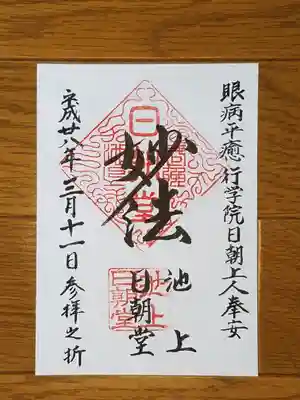 眼病平癒行学院日朝上人奉安
妙法
池上
日朝堂
平成廿八年三月十一日参拝之折